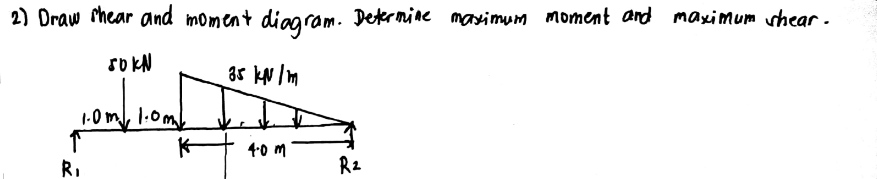 2) Draw shear and moment diagram. Determine maximum moment and maximum shear.
50 kN
35 kN/m
1.0 m 1.0 m
4.0 m
R1 R2